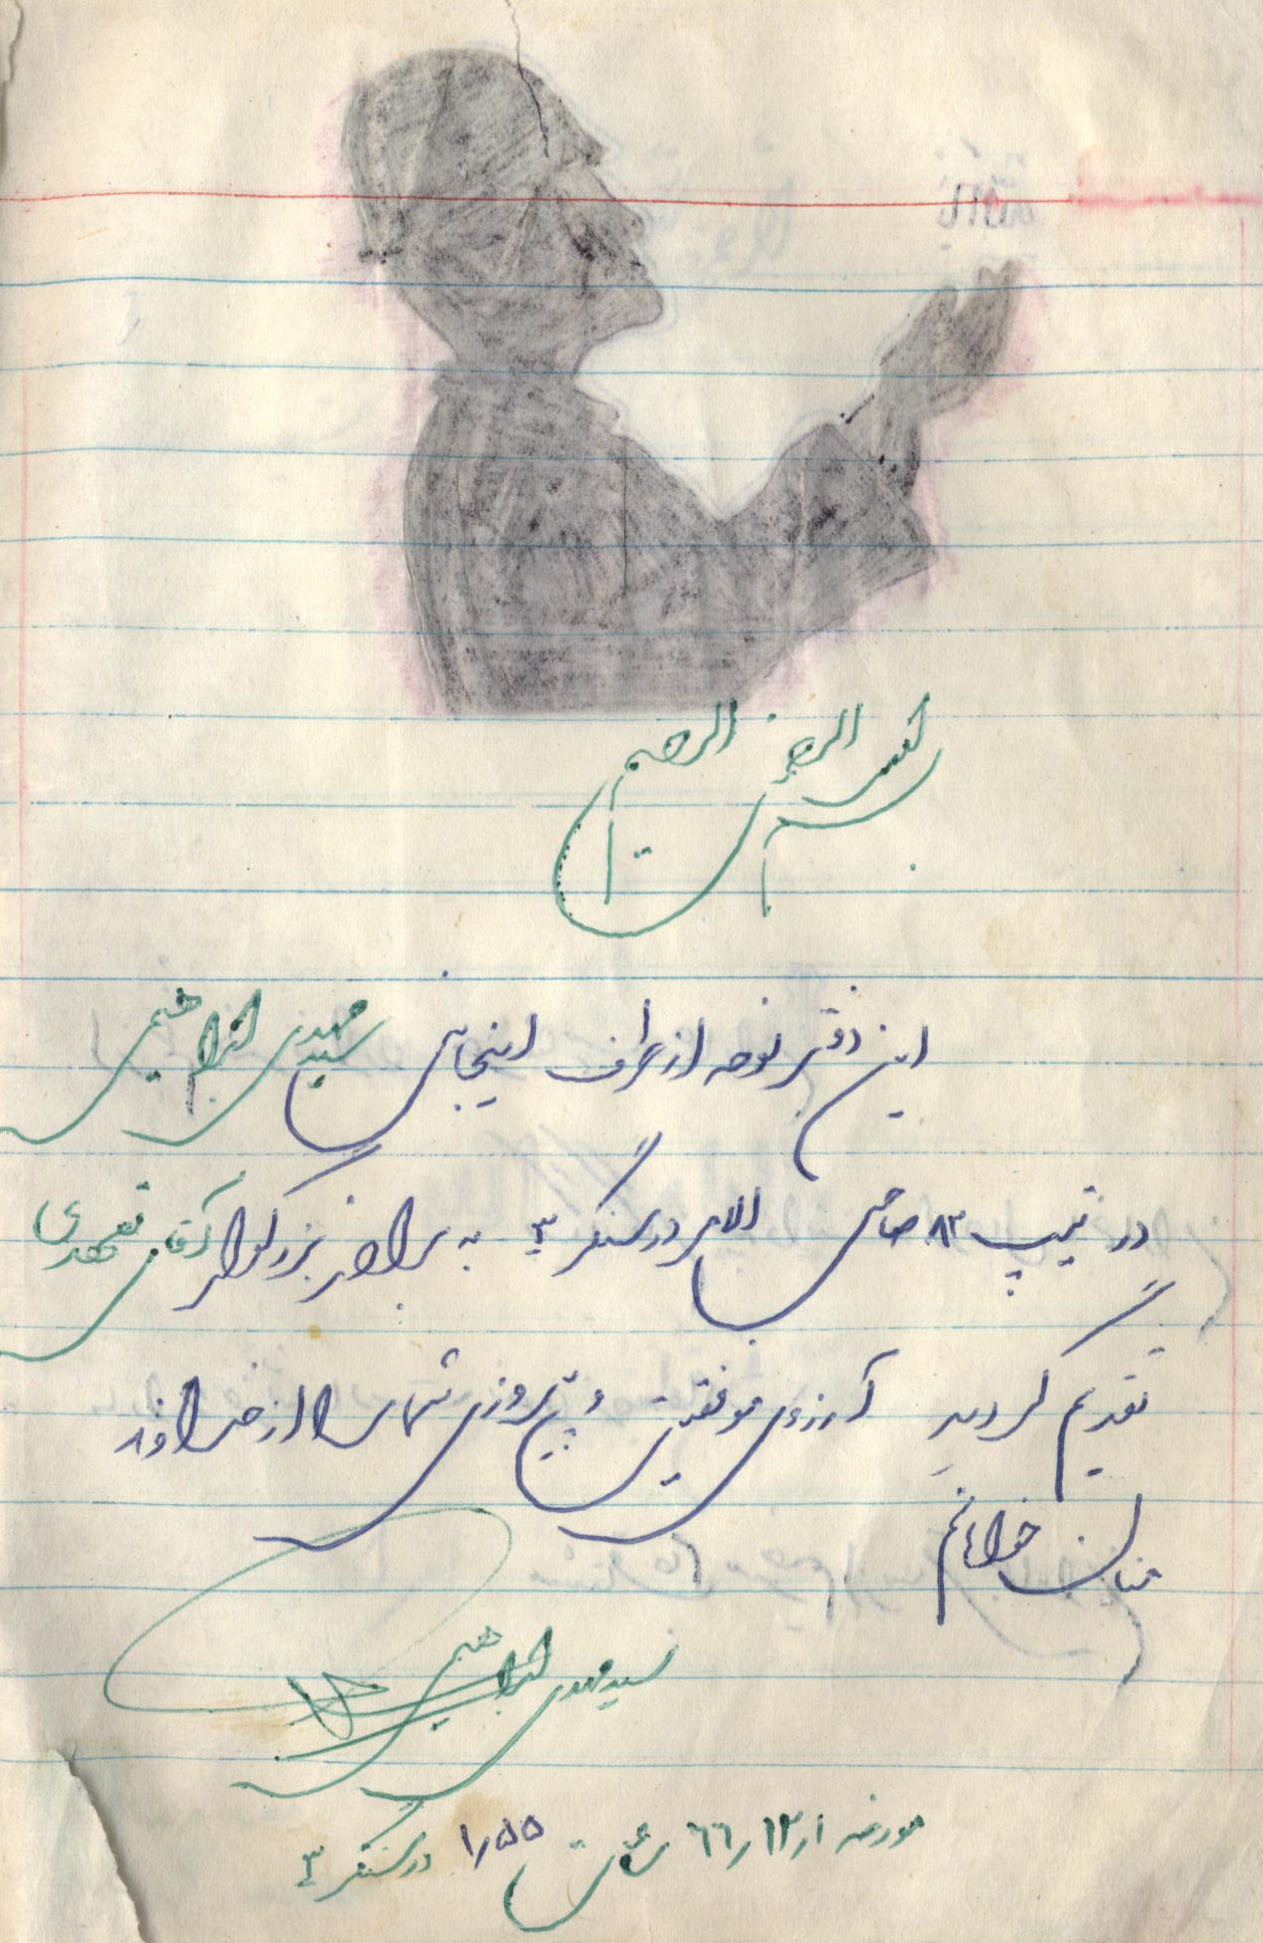 بسم الله الرحمن الرحیم
این دفتر نوحه از طرف اینجانب سید مهدی ابراهیمی
در تیپ ۸۳ صاحب الامر در سنگر ۳ به برادر بزرگوار آقای تعهدی
تقدیم گردید آرزوی موفقیت و پیروزی شما را از خداوند
منان خواهانم
سید مهدی ابراهیمی
مورخه ۱ر۱۲ر۶۶ ساعت ۱ر۵۵ در سنگر ۳